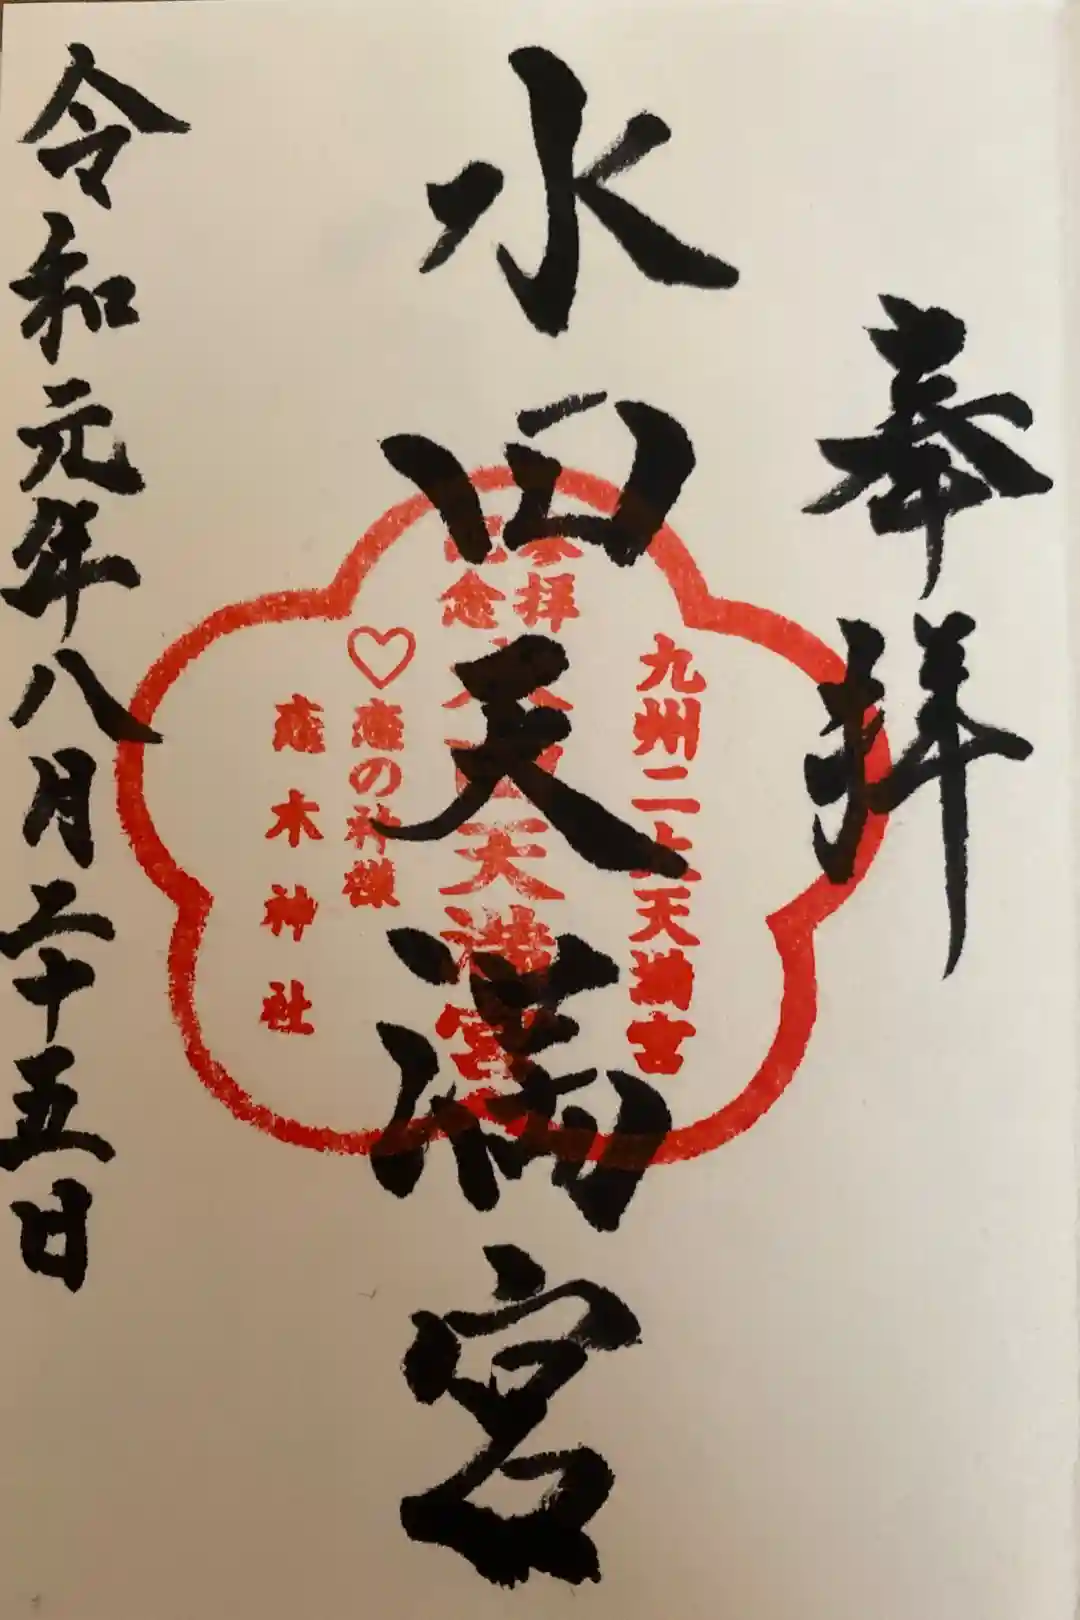 奉拝
水田天満宮
令和元年八月二十五日
九州二大天満宮
参拝
記念
水田天満宮
♡恋の神様
恋木神社